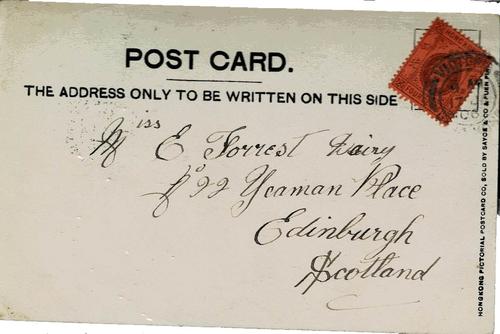 POST CARD.
THE ADDRESS ONLY TO BE WRITTEN ON THIS SIDE
Miss E Forrest Dairy
22 Yeaman Place
Edinburgh
Scotland
HONGKONG PICTORIAL POSTCARD CO, SOLD BY SAYCE & CO